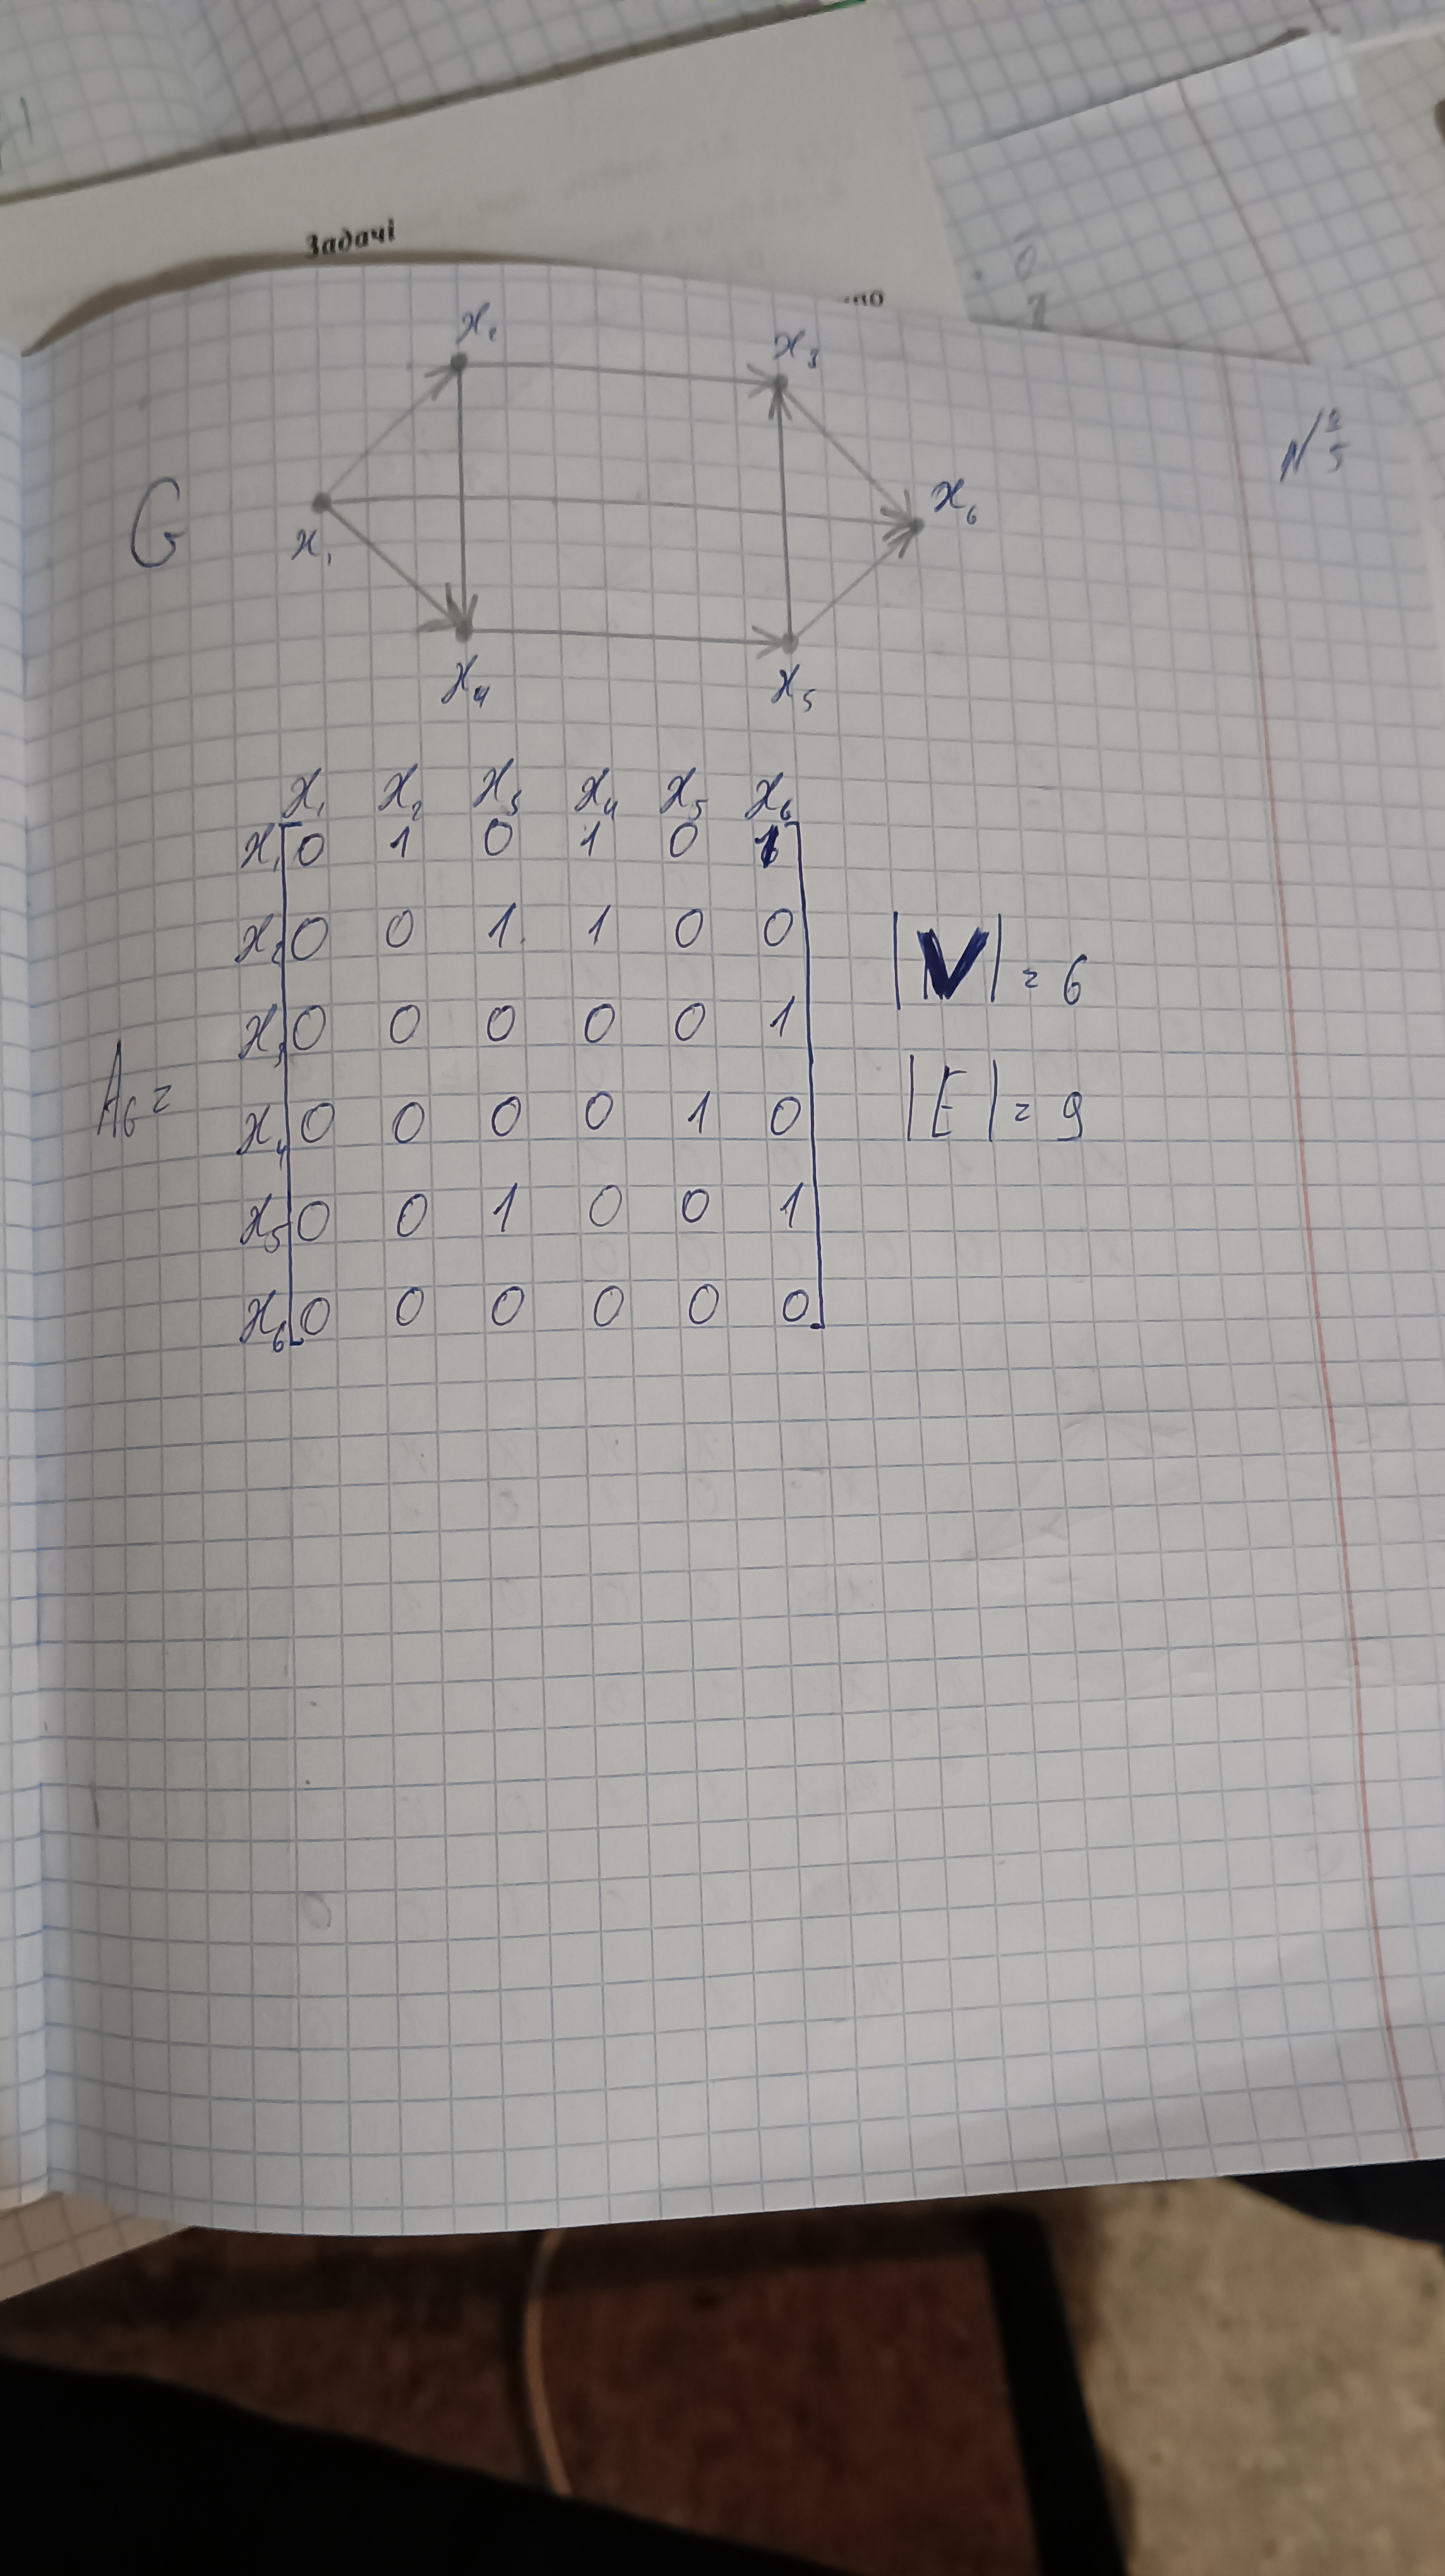 Задачі
x₂ x₃
N 2/5
G x₁ x₆
x₄ x₅
x₁ x₂ x₃ x₄ x₅ x₆
x₁ 0 1 0 1 0 1
x₂ 0 0 1 1 0 0
x₃ 0 0 0 0 0 1
x₄ 0 0 0 0 1 0
x₅ 0 0 1 0 0 1
x₆ 0 0 0 0 0 0
A_G =
|V| = 6
|E| = 9